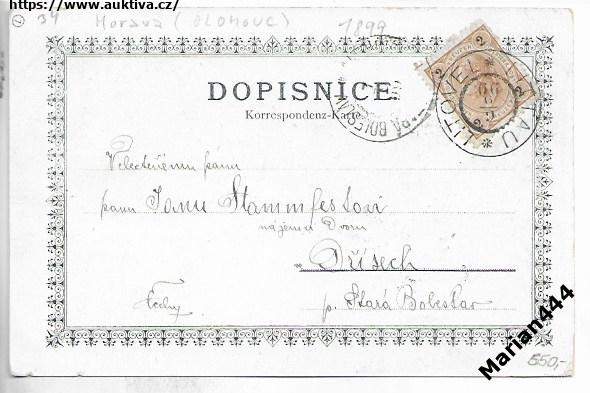 https://www.auktiva.cz/
34 Morava (OLOMOUC) 1899
DOPISNICE.
Korrespondenz-Karte.
LITOVEL * LITTAU *
Velectěnému pánu
panu Janu Stammfestovi
nájemci Dvora
Dřísech
p. Stará Boleslav
Čechy
Marian444
650,-